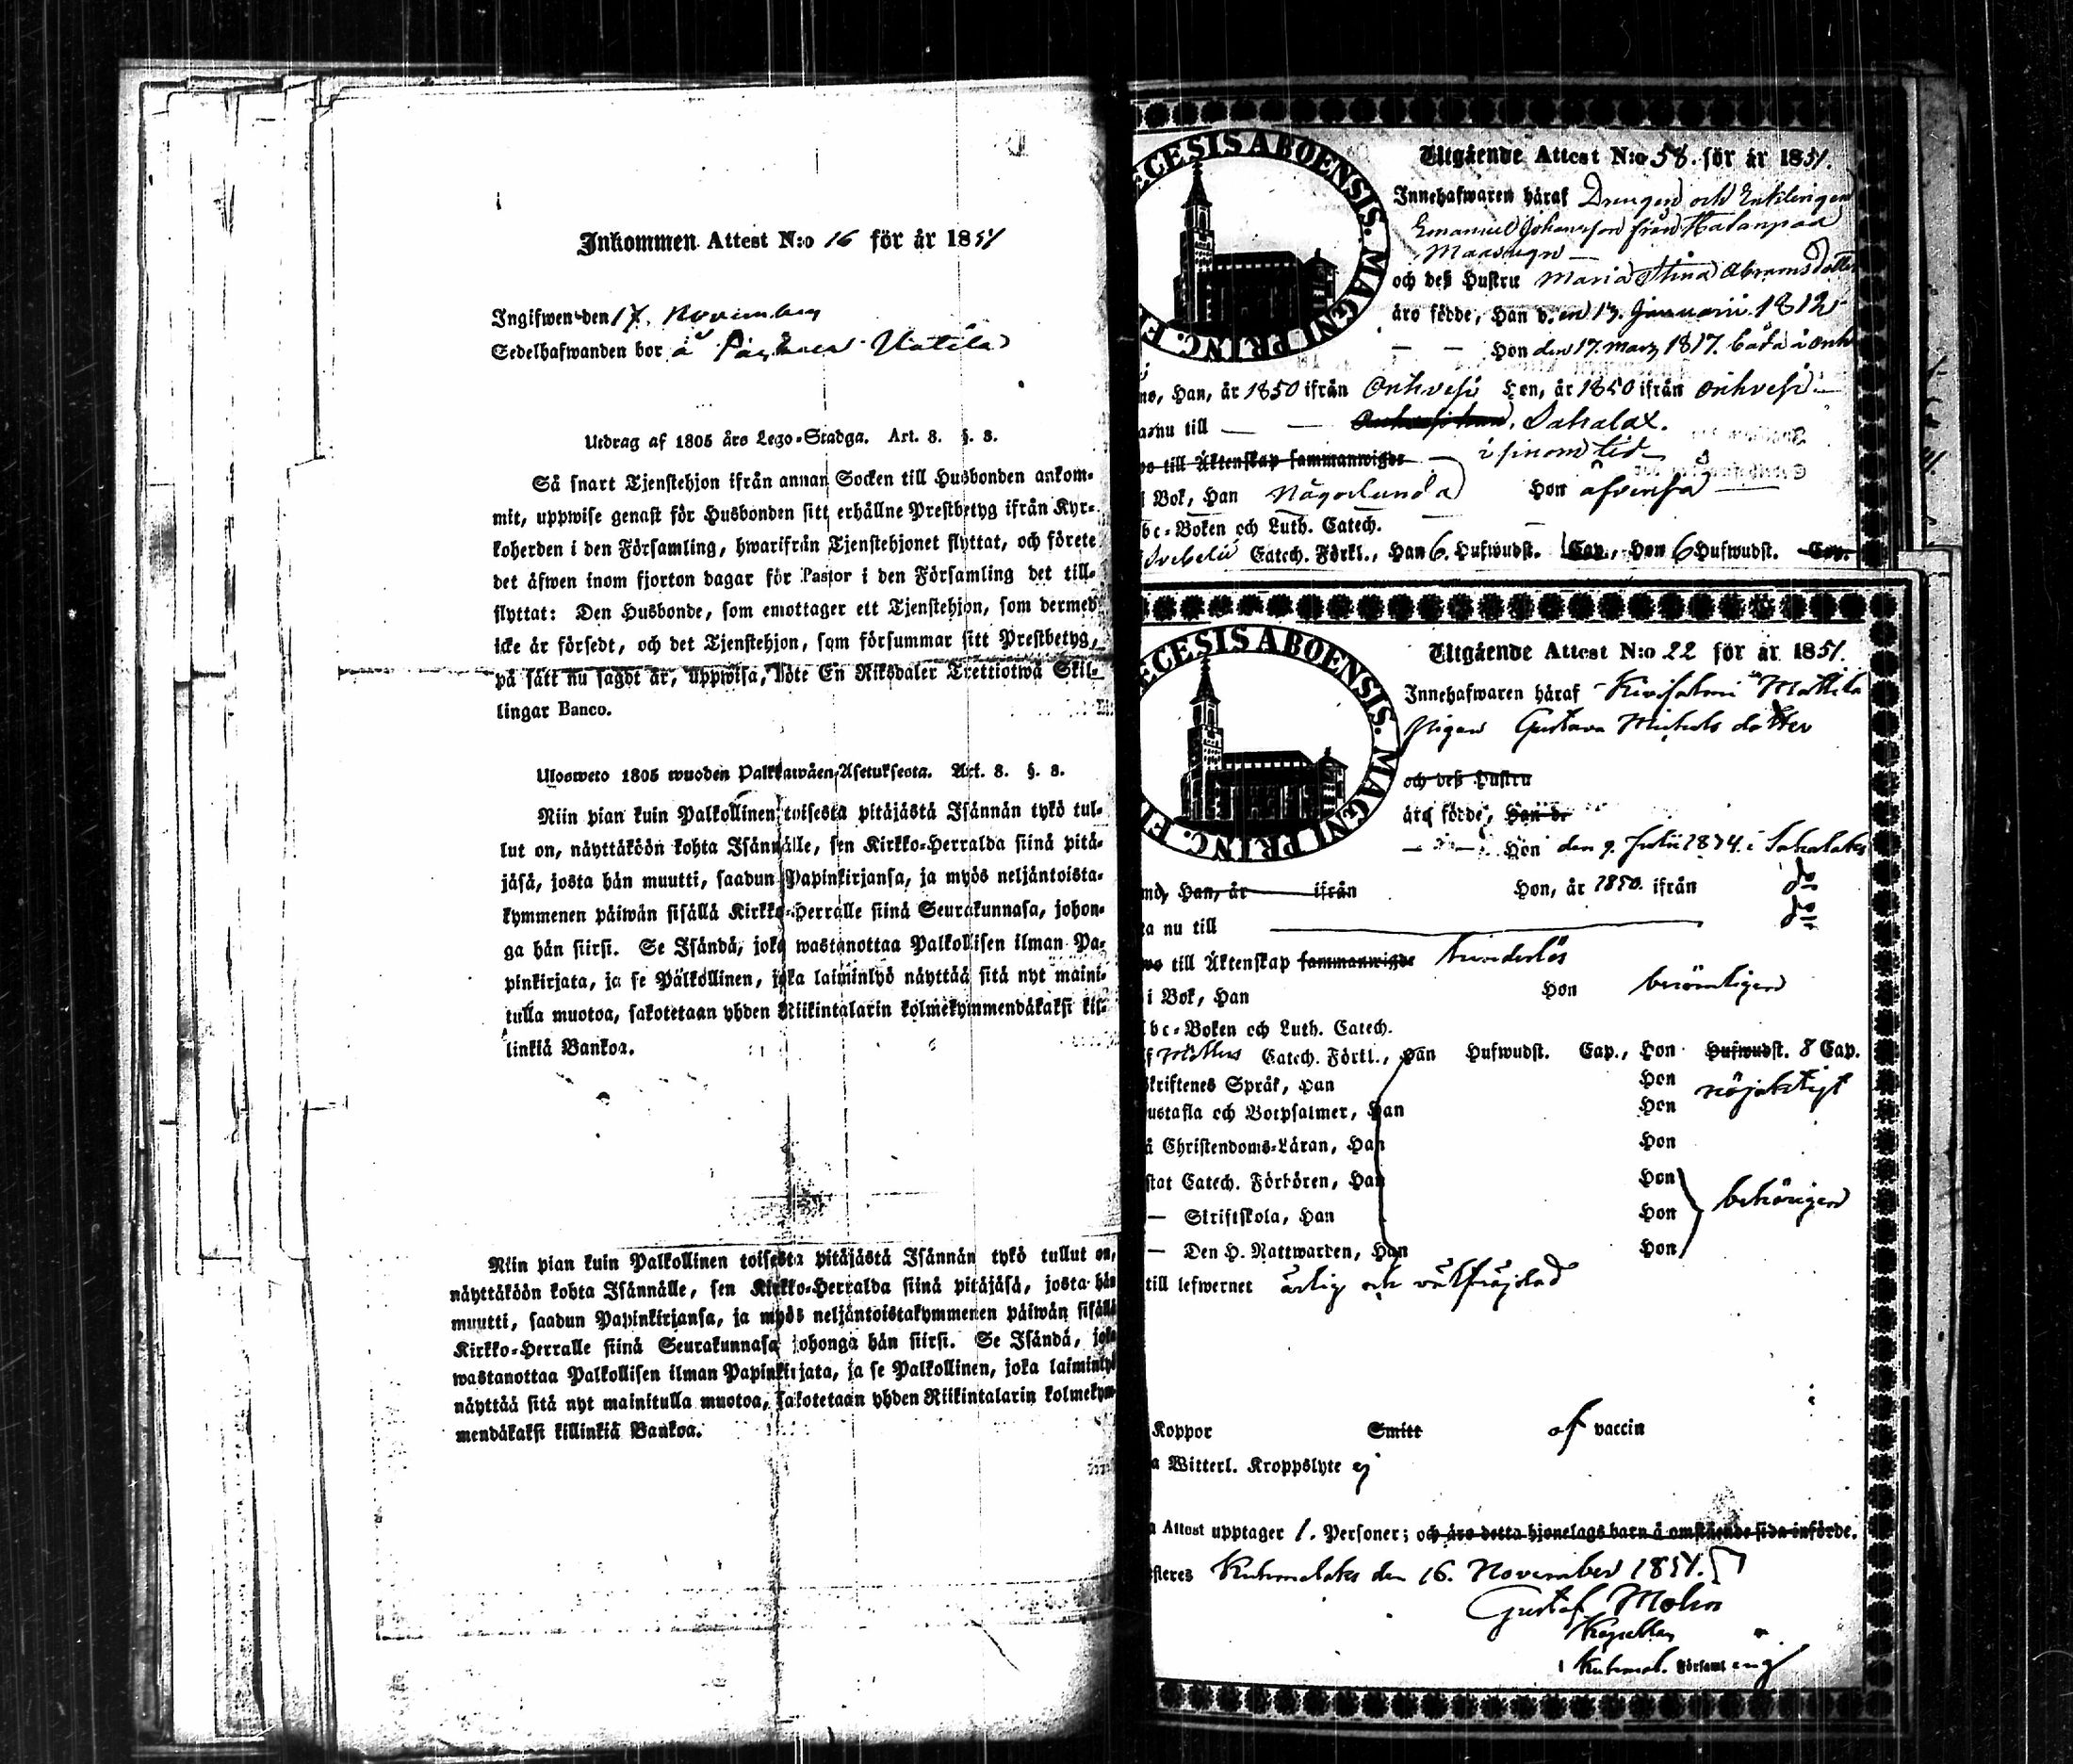 Inkommen Attest N:o 16 för år 1851
Ingifwen den 17. November
Sedelhafwanden bor å
Utdrag af 1805 års Lego-Stadga. Art. 8. §. 8.
Så snart Tjenstehjon ifrån annan Socken till Husbonden ankom-
mit, uppwise genast för Husbonden sitt erhållne Prestbetyg ifrån Kyr-
koherden i den Församling, hwarifrån Tjenstehjonet flyttat, och förete
det äfwen inom fjorton dagar för Pastor i den Församling det till-
flyttat: Den Husbonde, som emottager ett Tjenstehjon, som dermed
icke är försedt, och det Tjenstehjon, som försummar sitt Prestbetyg,
på sätt nu sagdt är, uppwisa, böte En Riksdaler Trettiotwå Skil-
lingar Banco.
Ulosweto 1805 wuoden Palkkawäen Asetuksesta. Art. 8. §. 8.
Niin pian kuin Palkollinen toisesta pitäjästä Isännän tykö tul-
lut on, näyttäköön kohta Isännälle, sen Kirkko-Herralda siinä pitä-
jäsä, josta hän muutti, saadun Papinkirjansa, ja myös neljäntoista-
kymmenen päiwän sisällä Kirkko-Herralle siinä Seurakunnasa, johon-
ga hän siirsi. Se Isändä, joka wastanottaa Palkollisen ilman Pa-
pinkirjata, ja se Palkollinen, joka laiminlyö näyttää sitä nyt maini-
tulla muotoa, sakotetaan yhden Riikintalarin kolmekymmendäkaksi kil-
linkiä Bankoa.
Niin pian kuin Palkollinen toisesta pitäjästä Isännän tykö tullut on,
näyttäköön kohta Isännälle, sen Kirkko-Herralda siinä pitäjäsä, josta hän
muutti, saadun Papinkirjansa, ja myös neljäntoistakymmenen päiwän sisällä
Kirkko-Herralle siinä Seurakunnasa johonga hän siirsi. Se Isändä, joka
wastanottaa Palkollisen ilman Papinkirjata, ja se Palkollinen, joka laiminlyö
näyttää sitä nyt mainitulla muotoa, sakotetaan yhden Riikintalarin kolmekym-
mendäkaksi killinkiä Bankoa.
ECESIS ABOENSIS. MAGNI PRINC. FI
Utgående Attest N:o 58. för år 1851.
Innehafwaren häraf Drengen och Enklingen
Emanuel Johansson från Hatanpää
och deß Hustru Maria Stina Abramsdotter
äro födde, Han d. en 13. Januarii 1812
— — Hon den 17. Mars 1817. båda i Orih
Han, år 1850 ifrån Orihvesi Hon, år 1850 ifrån Orihvesi —
nu till — — Sahalax.
till Äktenskap sammanwigde — i sinom tid
i Bok, Han Någorlunda Hon äfvenså
bc-Boken och Luth. Catech.
Svebelii Catech. Förkl., Han 6. Hufwudst. Cap., Hon 6 Hufwudst. Cap.
ECESIS ABOENSIS. MAGNI PRINC. FI
Utgående Attest N:o 22 för år 1851.
Innehafwaren häraf Mattila
Pigan Gustava Michels dotter
och deß Hustru
äro födde, Han de
— — Hon den 9. Julii 1834. i Sahalaks
Han, år ifrån Hon, år 1850. ifrån do
a nu till do
till Äktenskap sammanwigde hinderlös
i Bok, Han Hon berömligen
bc-Boken och Luth. Catech.
Möllers Catech. Förkl., Han Hufwudst. Cap., Hon Hufwudst. 8 Cap.
Skriftenes Språk, Han Hon nöjaktigt
ustafla och Botpsalmer, Han Hon
å Christendoms-Läran, Han Hon
stat Catech. Förhören, Han Hon
— Skriftskola, Han Hon behörigen
— Den H. Nattwarden, Han Hon
till lefwernet ärlig och välfräjdad
Koppor Smitt af vaccin
a Witterl. Kroppslyte ej
a Attest upptager 1. Personer; och äro detta hjonelags barn å omstående sida införde.
steres Kuhmalaks den 16. November 1851.
Gustaf
Kapellan
i Kuhmal. Församl eng